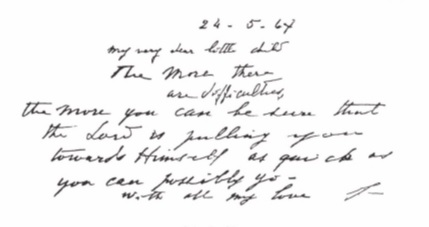 24 - 5 - 64
my very dear little child
The more there
are difficulties,
the more you can be sure that
the Lord is pulling you
towards Himself as quick as
you can possibly go -
with all my love